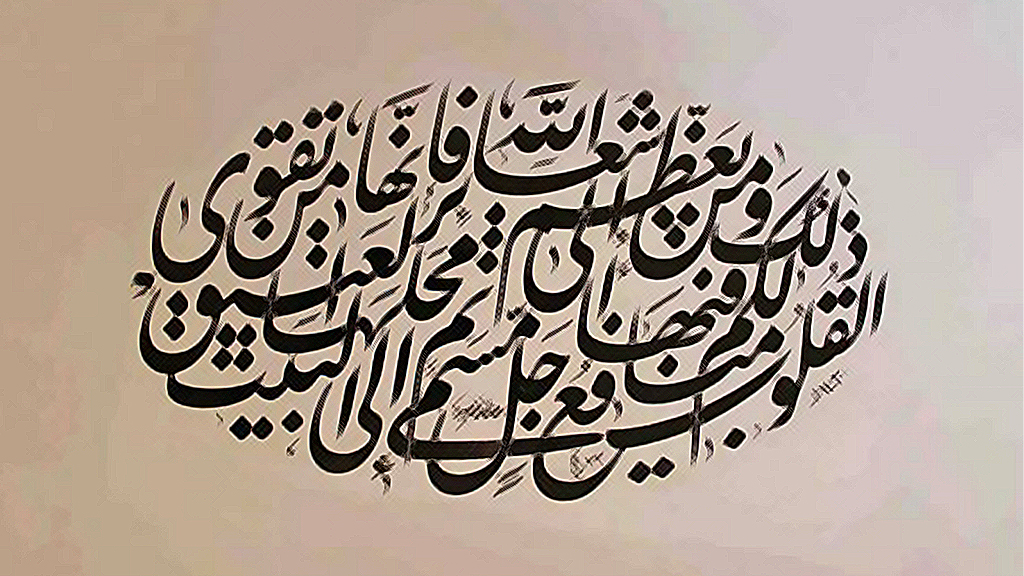 ذلك ومن يعظم شعائر الله فإنها من تقوى
القلوب لكم فيها منافع إلى أجل مسمى ثم محلها إلى البيت العتيق